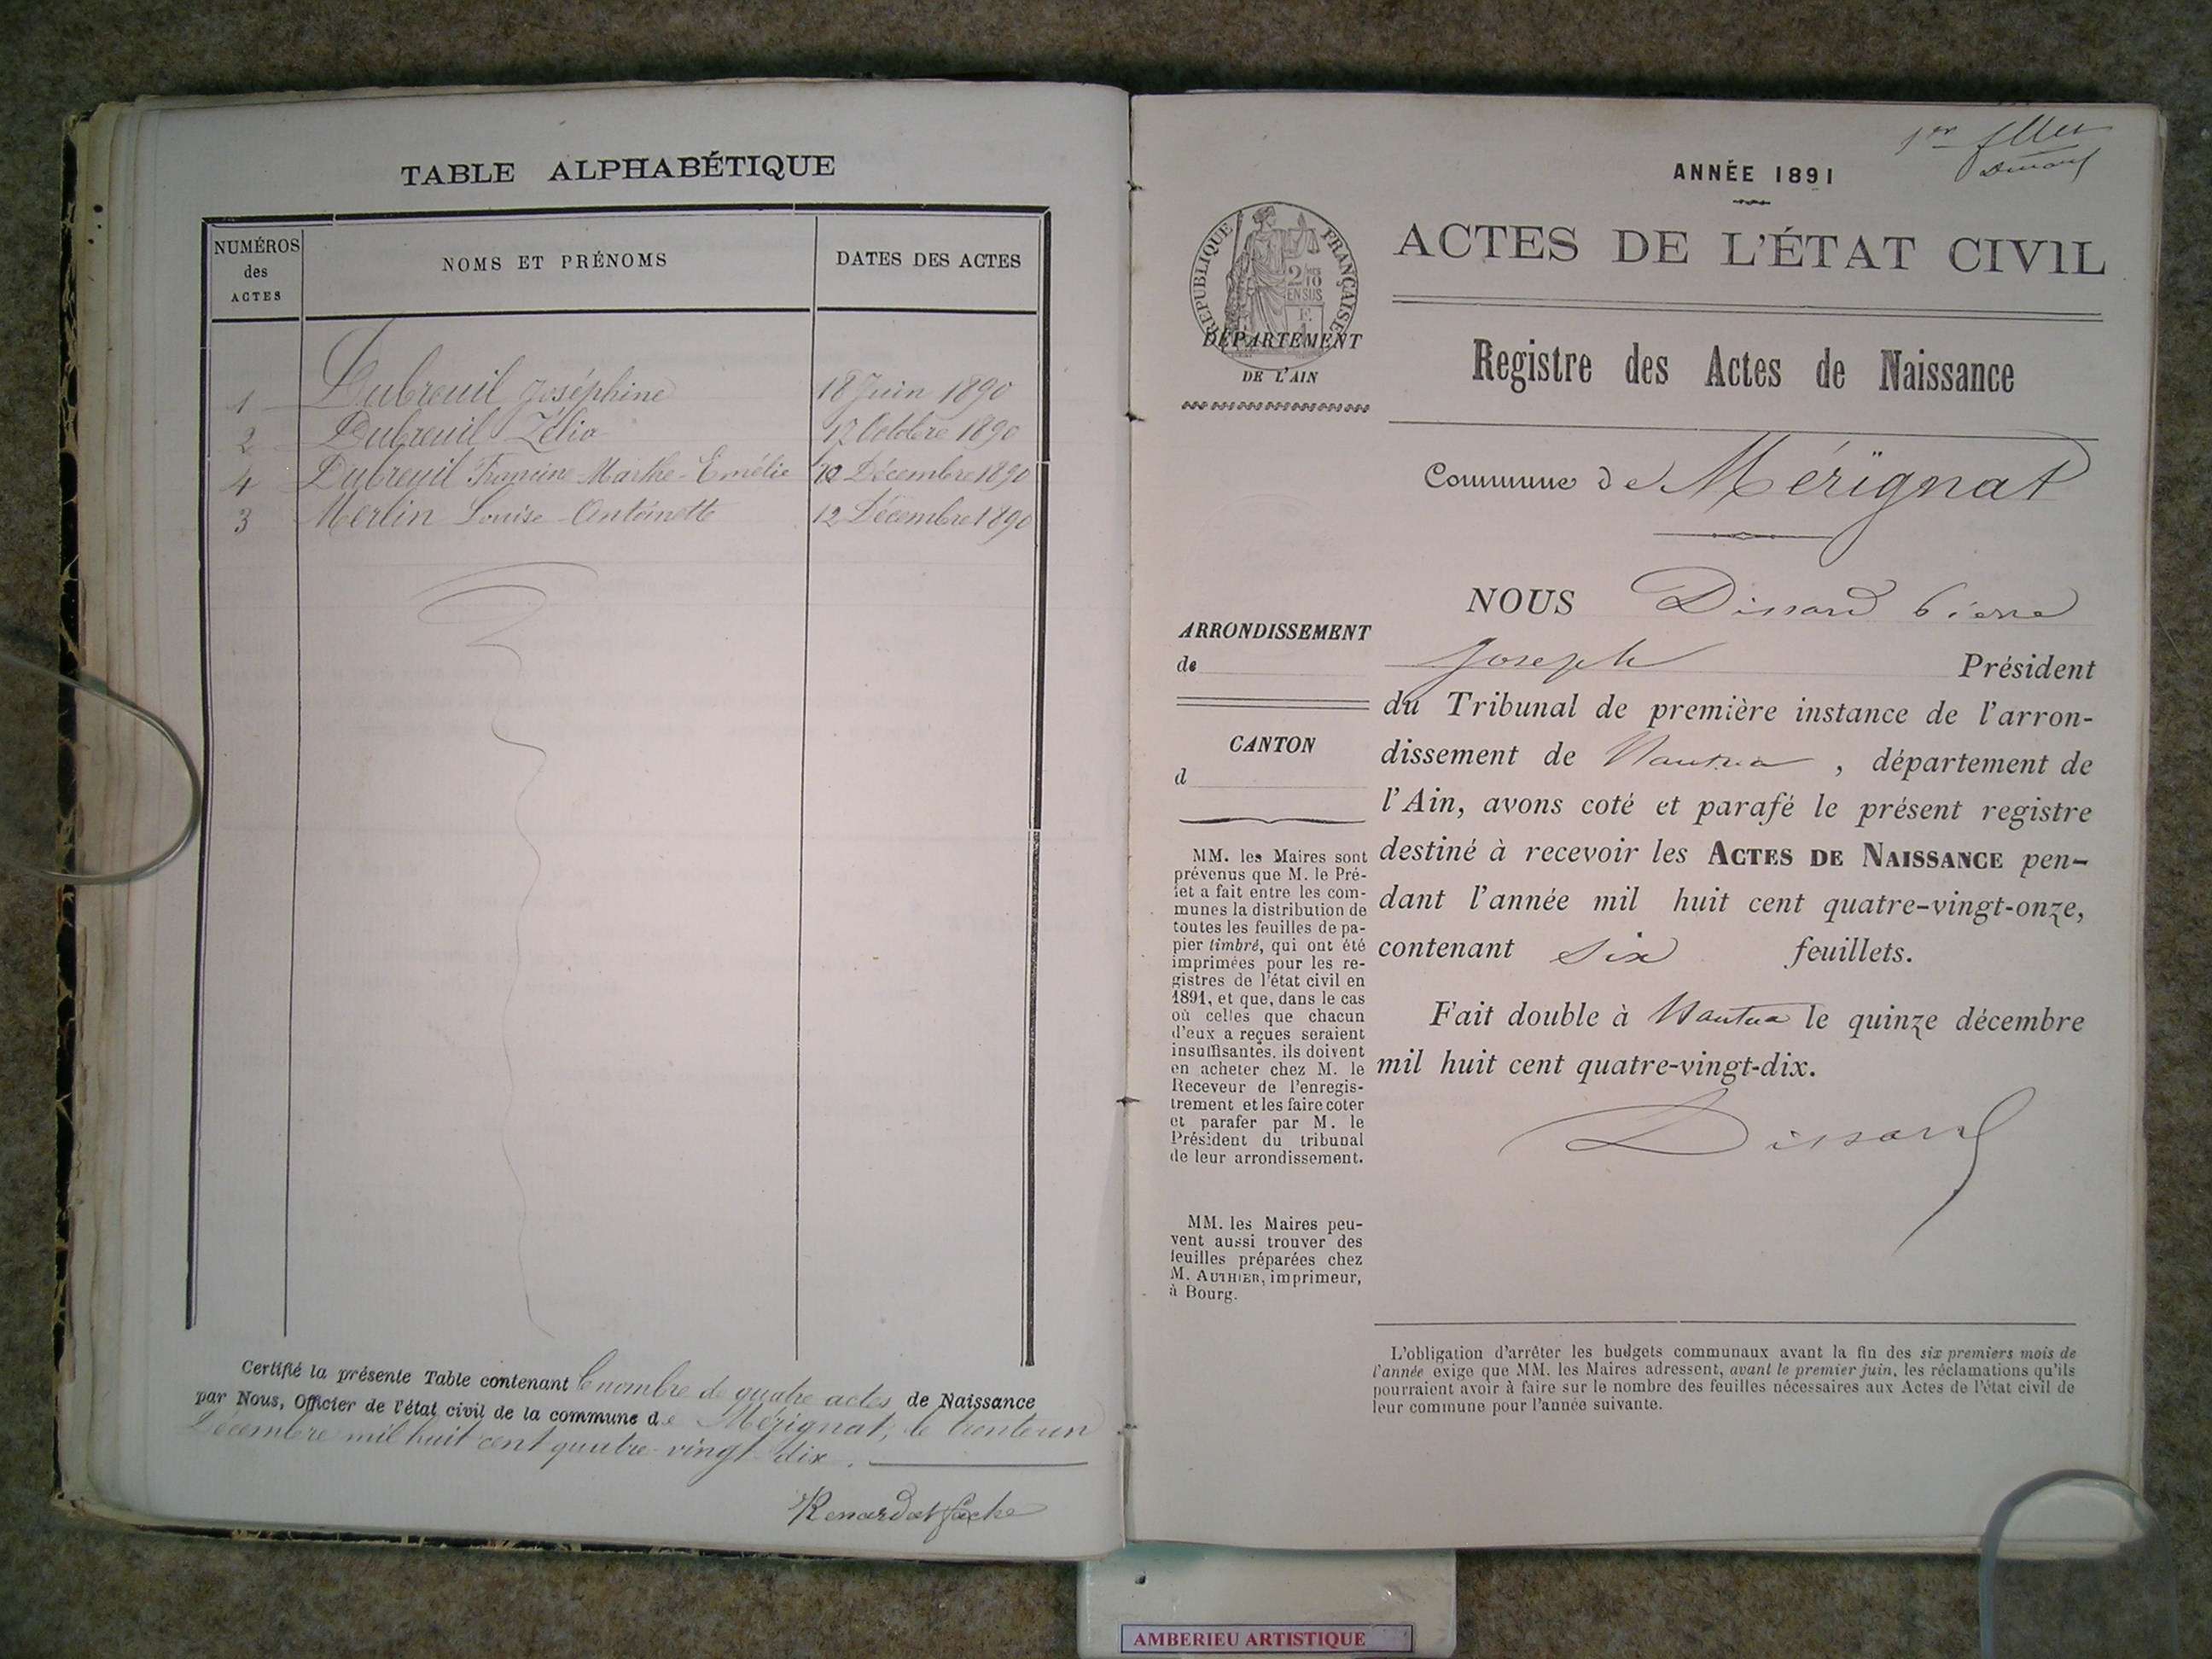 TABLE ALPHABÉTIQUE
NUMÉROS des ACTES
NOMS ET PRÉNOMS
DATES DES ACTES
1 Dubreuil Joséphine 18 Juin 1890
2 Dubreuil Zélia 17 Octobre 1890
4 Dubreuil Francine Marthe-Emélie 12 Décembre 1890
3 Merlin Louise Antoinette 12 Décembre 1890
Certifié la présente Table contenant le nombre de quatre actes de Naissance
par Nous, Officier de l'état civil de la commune de Mérignat, le trente un
Décembre mil huit cent quatre-vingt dix.
ANNÉE 1891
ACTES DE L'ÉTAT CIVIL
RÉPUBLIQUE FRANÇAISE
DÉPARTEMENT
DE L'AIN
Registre des Actes de Naissance
Commune de Mérignat
ARRONDISSEMENT
de
CANTON
d
MM. les Maires sont
prévenus que M. le Pré-
fet a fait entre les com-
munes la distribution de
toutes les feuilles de pa-
pier timbré, qui ont été
imprimées pour les re-
gistres de l'état civil en
1891, et que, dans le cas
où celles que chacun
d'eux a reçues seraient
insuffisantes, ils doivent
en acheter chez M. le
Receveur de l'enregis-
trement et les faire coter
et parafer par M. le
Président du tribunal
de leur arrondissement.
MM. les Maires peu-
vent aussi trouver des
feuilles préparées chez
M. AUTHIER, imprimeur,
à Bourg.
NOUS Dissard Pierre
Joseph Président
du Tribunal de première instance de l'arron-
dissement de Nantua, département de
l'Ain, avons coté et parafé le présent registre
destiné à recevoir les ACTES DE NAISSANCE pen-
dant l'année mil huit cent quatre-vingt-onze,
contenant six feuillets.
Fait double à Nantua le quinze décembre
mil huit cent quatre-vingt-dix.
Dissard
L'obligation d'arrêter les budgets communaux avant la fin des six premiers mois de
l'année exige que MM. les Maires adressent, avant le premier juin, les réclamations qu'ils
pourraient avoir à faire sur le nombre des feuilles nécessaires aux Actes de l'état civil de
leur commune pour l'année suivante.
AMBERIEU ARTISTIQUE